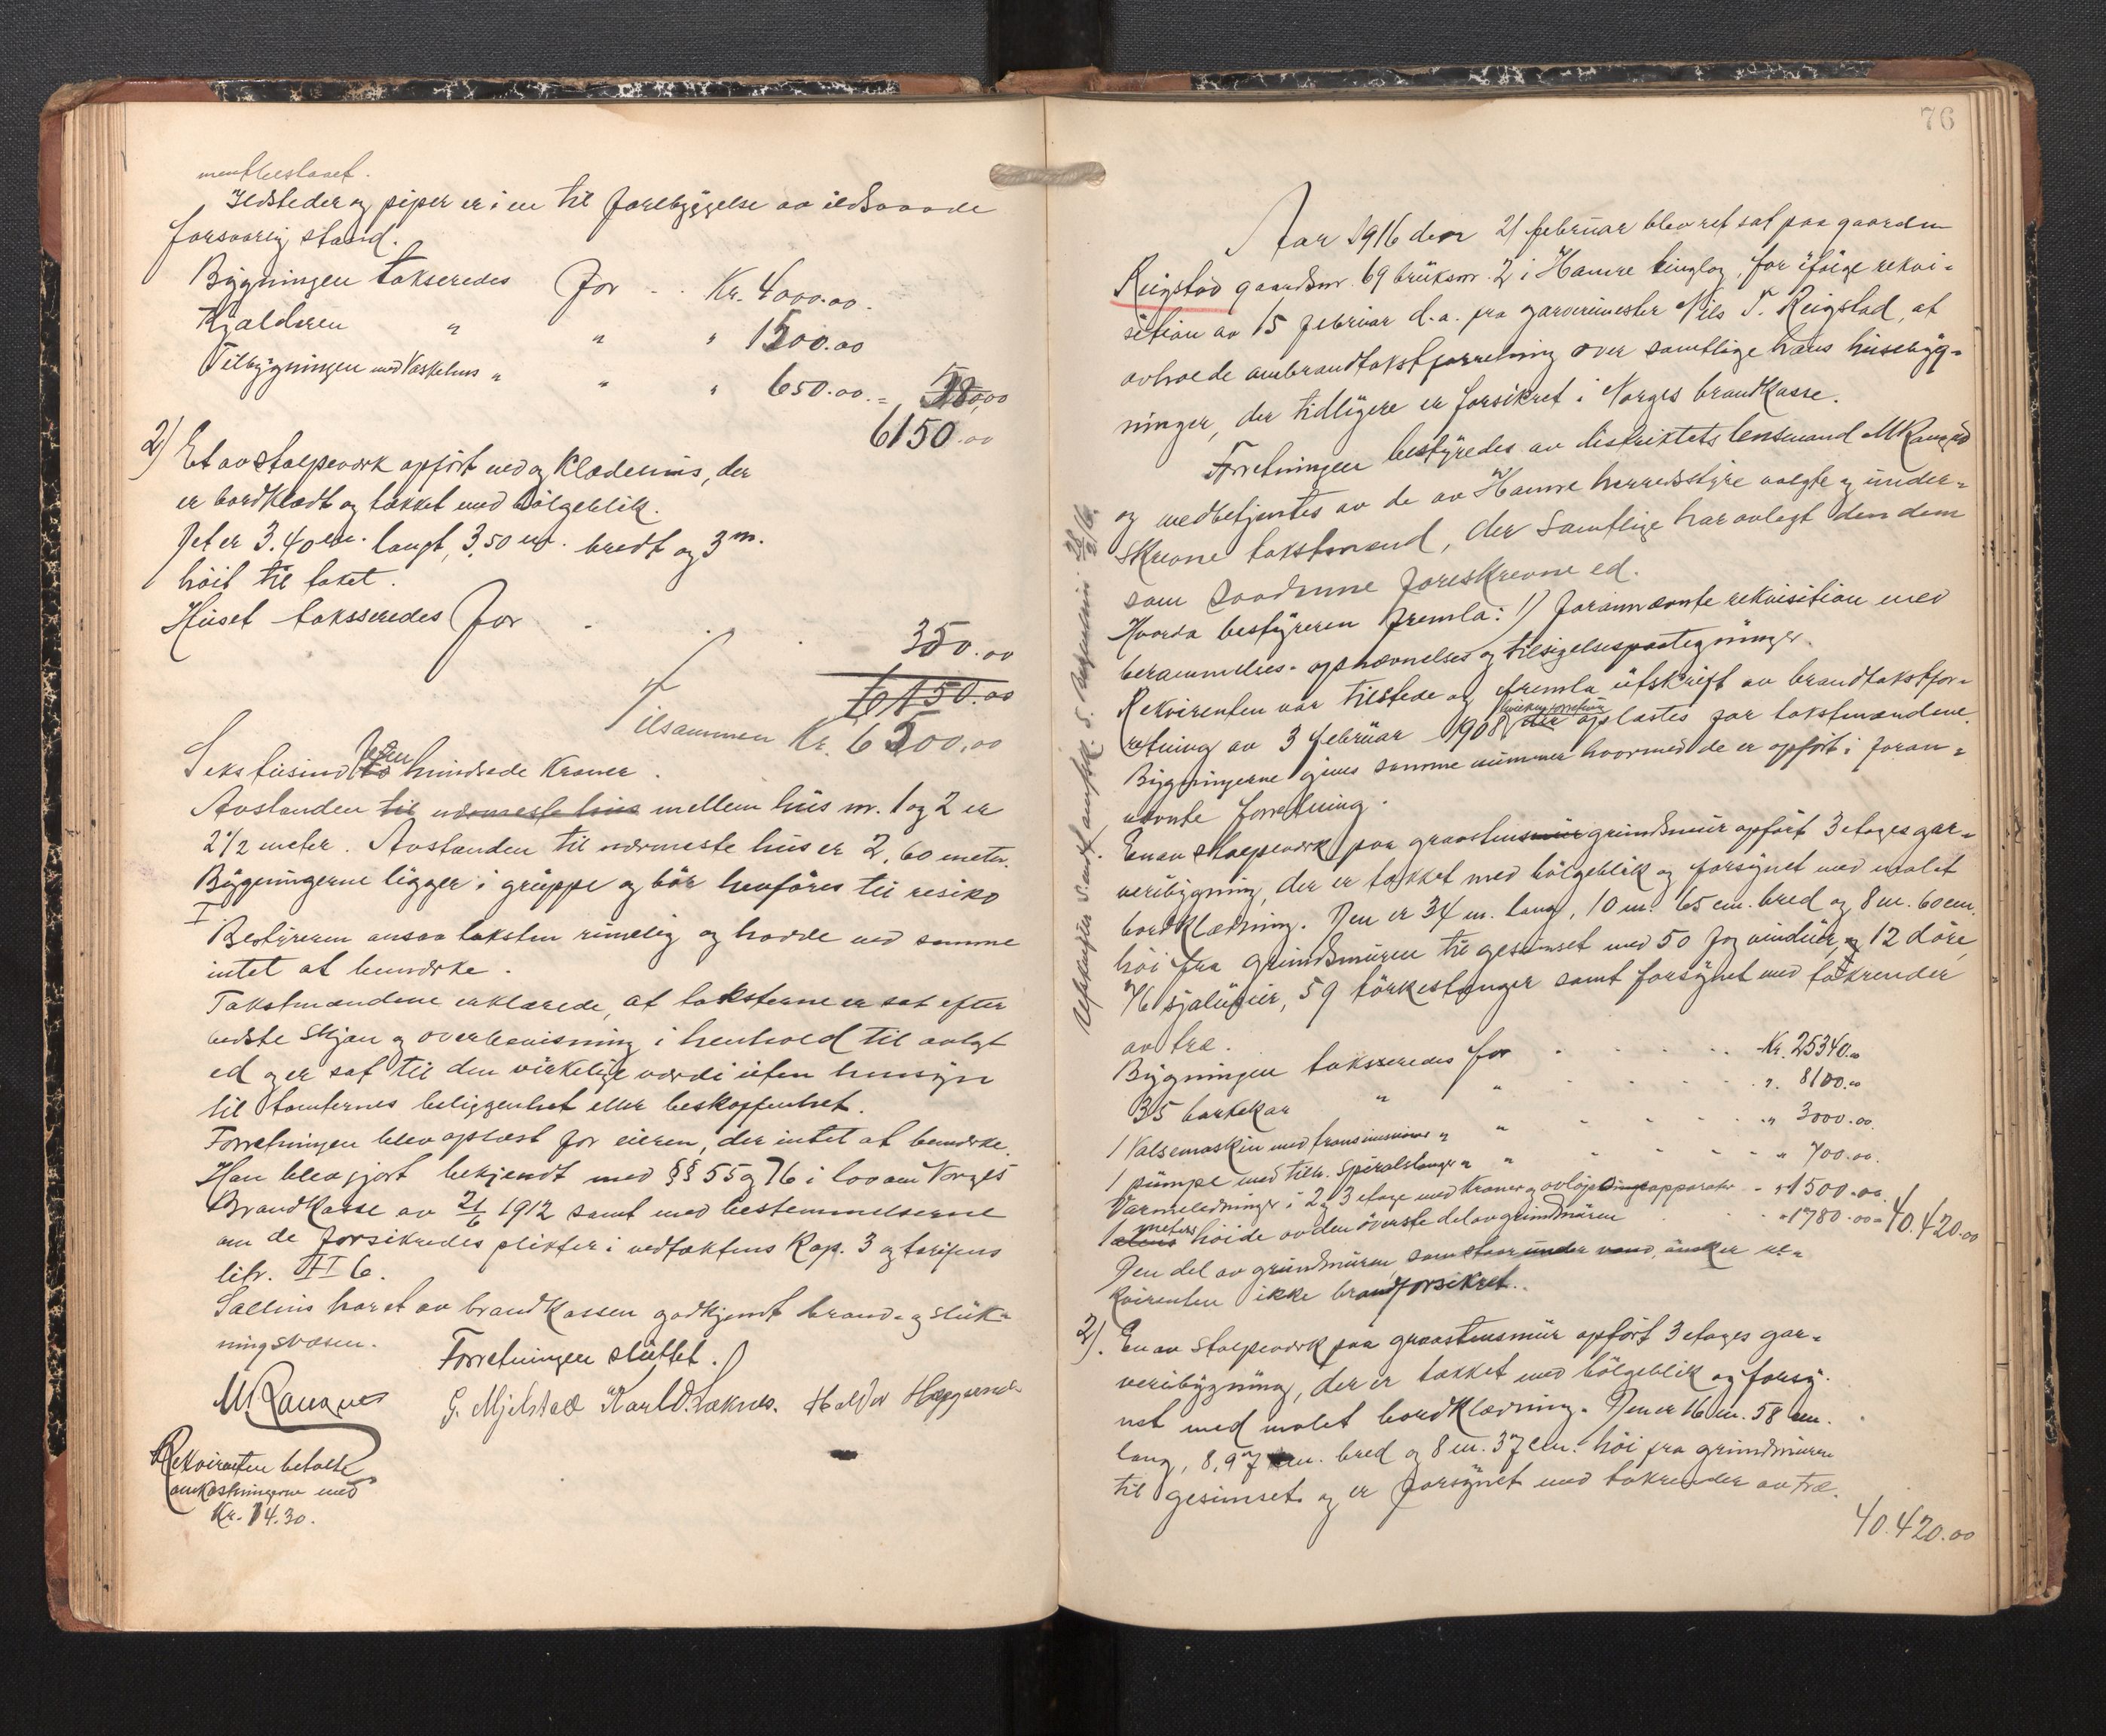 mentbeslaaet.
Ildsteder og piper er i en til forebyggelse av ildsvaade
forsvarlig stand.
Bygningen takseredes for - . Kr. 4000.00.
Kjælderen " " " 1500.00
Tilbygningen med Vaskehus " " " 650.00. =
6150.00
2) Et av stolpeverk opført ved og klædeshus, der
er bordklædt og tækket med bølgeblik.
Det er 3.40 m. langt, 3,50 m. bredt og 3 m.
høit til taket.
Huset taksseredes for . . . 350.00
6150.00
Tilsammen Kr. 6500.00
Seks tusind to fem hundrede Kroner.
Avstanden til nærmeste hus mellem hus nr. 1 og 2 er
2 1/2 meter. Avstanden til nærmeste hus er 2,60 meter.
Bygningerne ligger i gruppe og bør henføres til resiko
I
Bestyreren ansaa taksten rimelig og hadde ved samme
intet at bemærke.
Takstmændene erklærede, at taksterne er sat efter
bedste skjøn og overbevisning i henhold til avlagt
ed og er sat til den virkelige værdi uten hensyn
til tomternes beliggenhet eller beskaffenhet.
Forretningen blev oplæst for eieren, der intet at bemærke.
Han blev gjort bekjendt med §§ 55 og 76 i lov om Norges
Brandkasse av 21/6 1912 samt med bestemmelserne
om de forsikredes plikter i vedtæktens Kap. 3 og tarifens
litr. II 6.
har et av brandkassen godkjent brand- og sluk-
ningsvæsen.
Forretningen sluttet.
G. Mjelstad Karl O. Haldor
Rekvirenten betalte
omkostningerne med
Kr. 14.30.
76
Aar 1916 den 21 februar blev ret sat paa gaarden
Reigstad gaardsnr. 69 bruksnr. 2 i Hamre tinglag, for ifølge rekvi-
sition av 15 februar d.a. fra garverimester Nils T. Reigstad, at
avholde ombrandtakstforretning over samtlige hans husebyg-
ninger, der tidligere er forsikret i Norges brandkasse.
Forretningen bestyredes av distriktets lensmand
og medbetjentes av de av Hamre herredsstyre valgte og under-
skrevne takstmænd, der samtlige har avlagt den dem
som saadanne foreskrevne ed.
Hvorda bestyreren fremla: 1) forannævnte rekvisition med
berammelses- opnævnelses og tilsigelsespaategninger.
Rekvirenten var tilstede og fremla utskrift av brandtakstfor-
retning av 3 februar 1908, der oplæstes for takstmændene.
Bygningerne gives samme nummer hvormed de er opført i foran-
nævnte forretning.
En av stolpeverk paa graastensmur grundmur opført 3 etages gar-
veribygning, der er tækket med bølgeblik og forsynet med malet
bordklædning. Den er 34 m. lang, 10 m. 65 cm. bred og 8 m. 60 cm.
høi fra grundmuren til gesimset med 50 fag vinduer, og 12 døre,
og 76 sjalusier, 59 tørkestanger samt forsynet med takrender
av træ.
Bygningen taksseredes for . . . . Kr. 25340.00
35 barkekar " " . . . " 8100.00
1 Valsemaskin med transmissioner " " . . . " 3000.00.
1 pumpe med tilh. spiralslanger " " - - - " 700.00.
Varmeledninger i 2 og 3 etage med kraner og avløpsapparater - " 1500.00.
1 alens meters høide av den øverste del av grundmuren . . " 1780.00 = 40.420.00
Den del av grundmuren, som staar under vand, ønsker re-
kvirenten ikke brandforsikret.
2). En av stolpeverk paa graastensmur opført 3 etages gar-
veribygning, der er tækket med bølgeblik og forsy-
net med malet bordklædning. Den er 16 m. 58 cm.
lang, 8,97 m. bred og 8 m. 37 cm. høi fra grundmuren
til gesimset og er forsynet med takrender av træ.
40.420.00